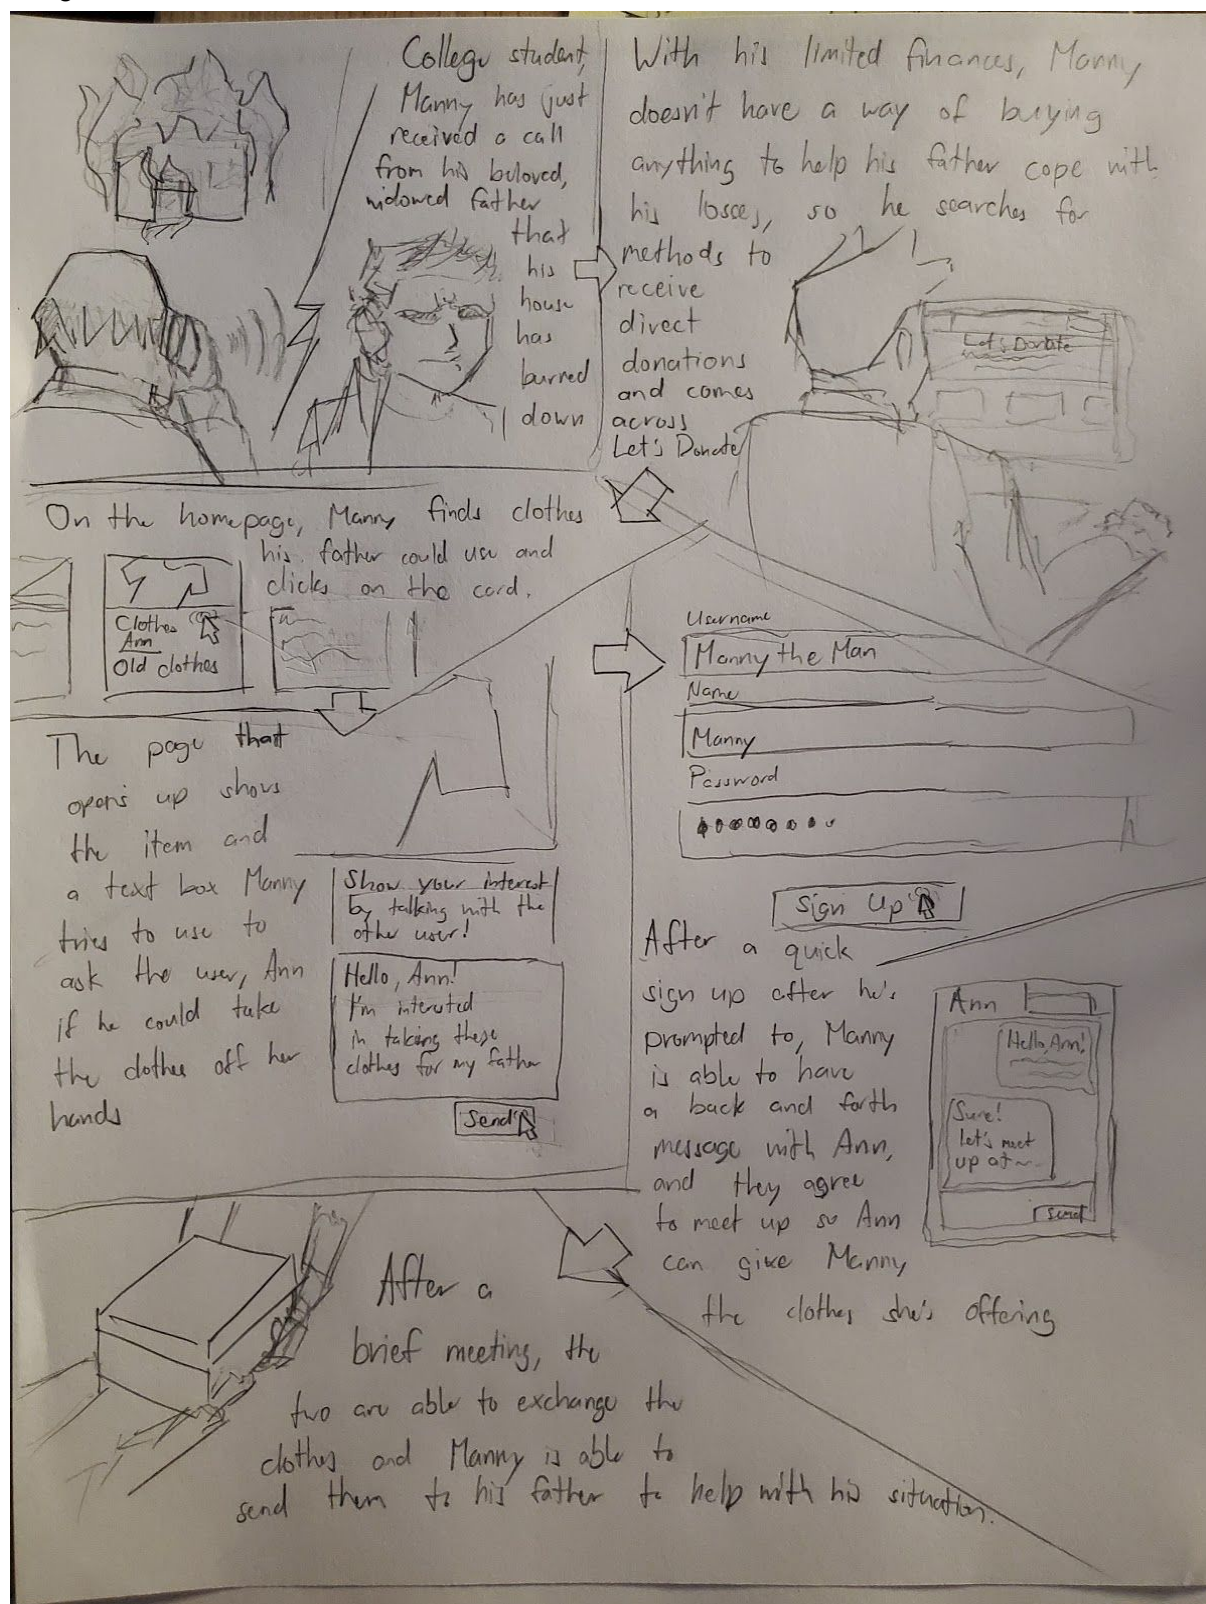 College student,
Manny has just
received a call
from his beloved,
widowed father
that
his
house
has
burned
down
With his limited finances, Manny
doesn't have a way of buying
anything to help his father cope with
his losses, so he searches for
methods to
receive
direct
donations
and comes
across
Let's Donate
Let's Donate
On the homepage, Manny finds clothes
his father could use and
clicks on the card.
Clothes
Ann
Old clothes
The page that
opens up shows
the item and
a text box Manny
tries to use to
ask the user, Ann
if he could take
the clothes off her
hands
Show your interest
by talking with the
other user!
Hello, Ann!
I'm interested
in taking these
clothes for my father
Send
Username
Manny the Man
Name
Manny
Password
Sign Up
After a quick
sign up after he's
prompted to, Manny
is able to have
a back and forth
message with Ann,
and they agree
to meet up so Ann
can give Manny
the clothes she's offering
Ann
Hello, Ann!
Sure!
let's meet
up at~
Send
After a
brief meeting, the
two are able to exchange the
clothes and Manny is able to
send them to his father to help with his situation.